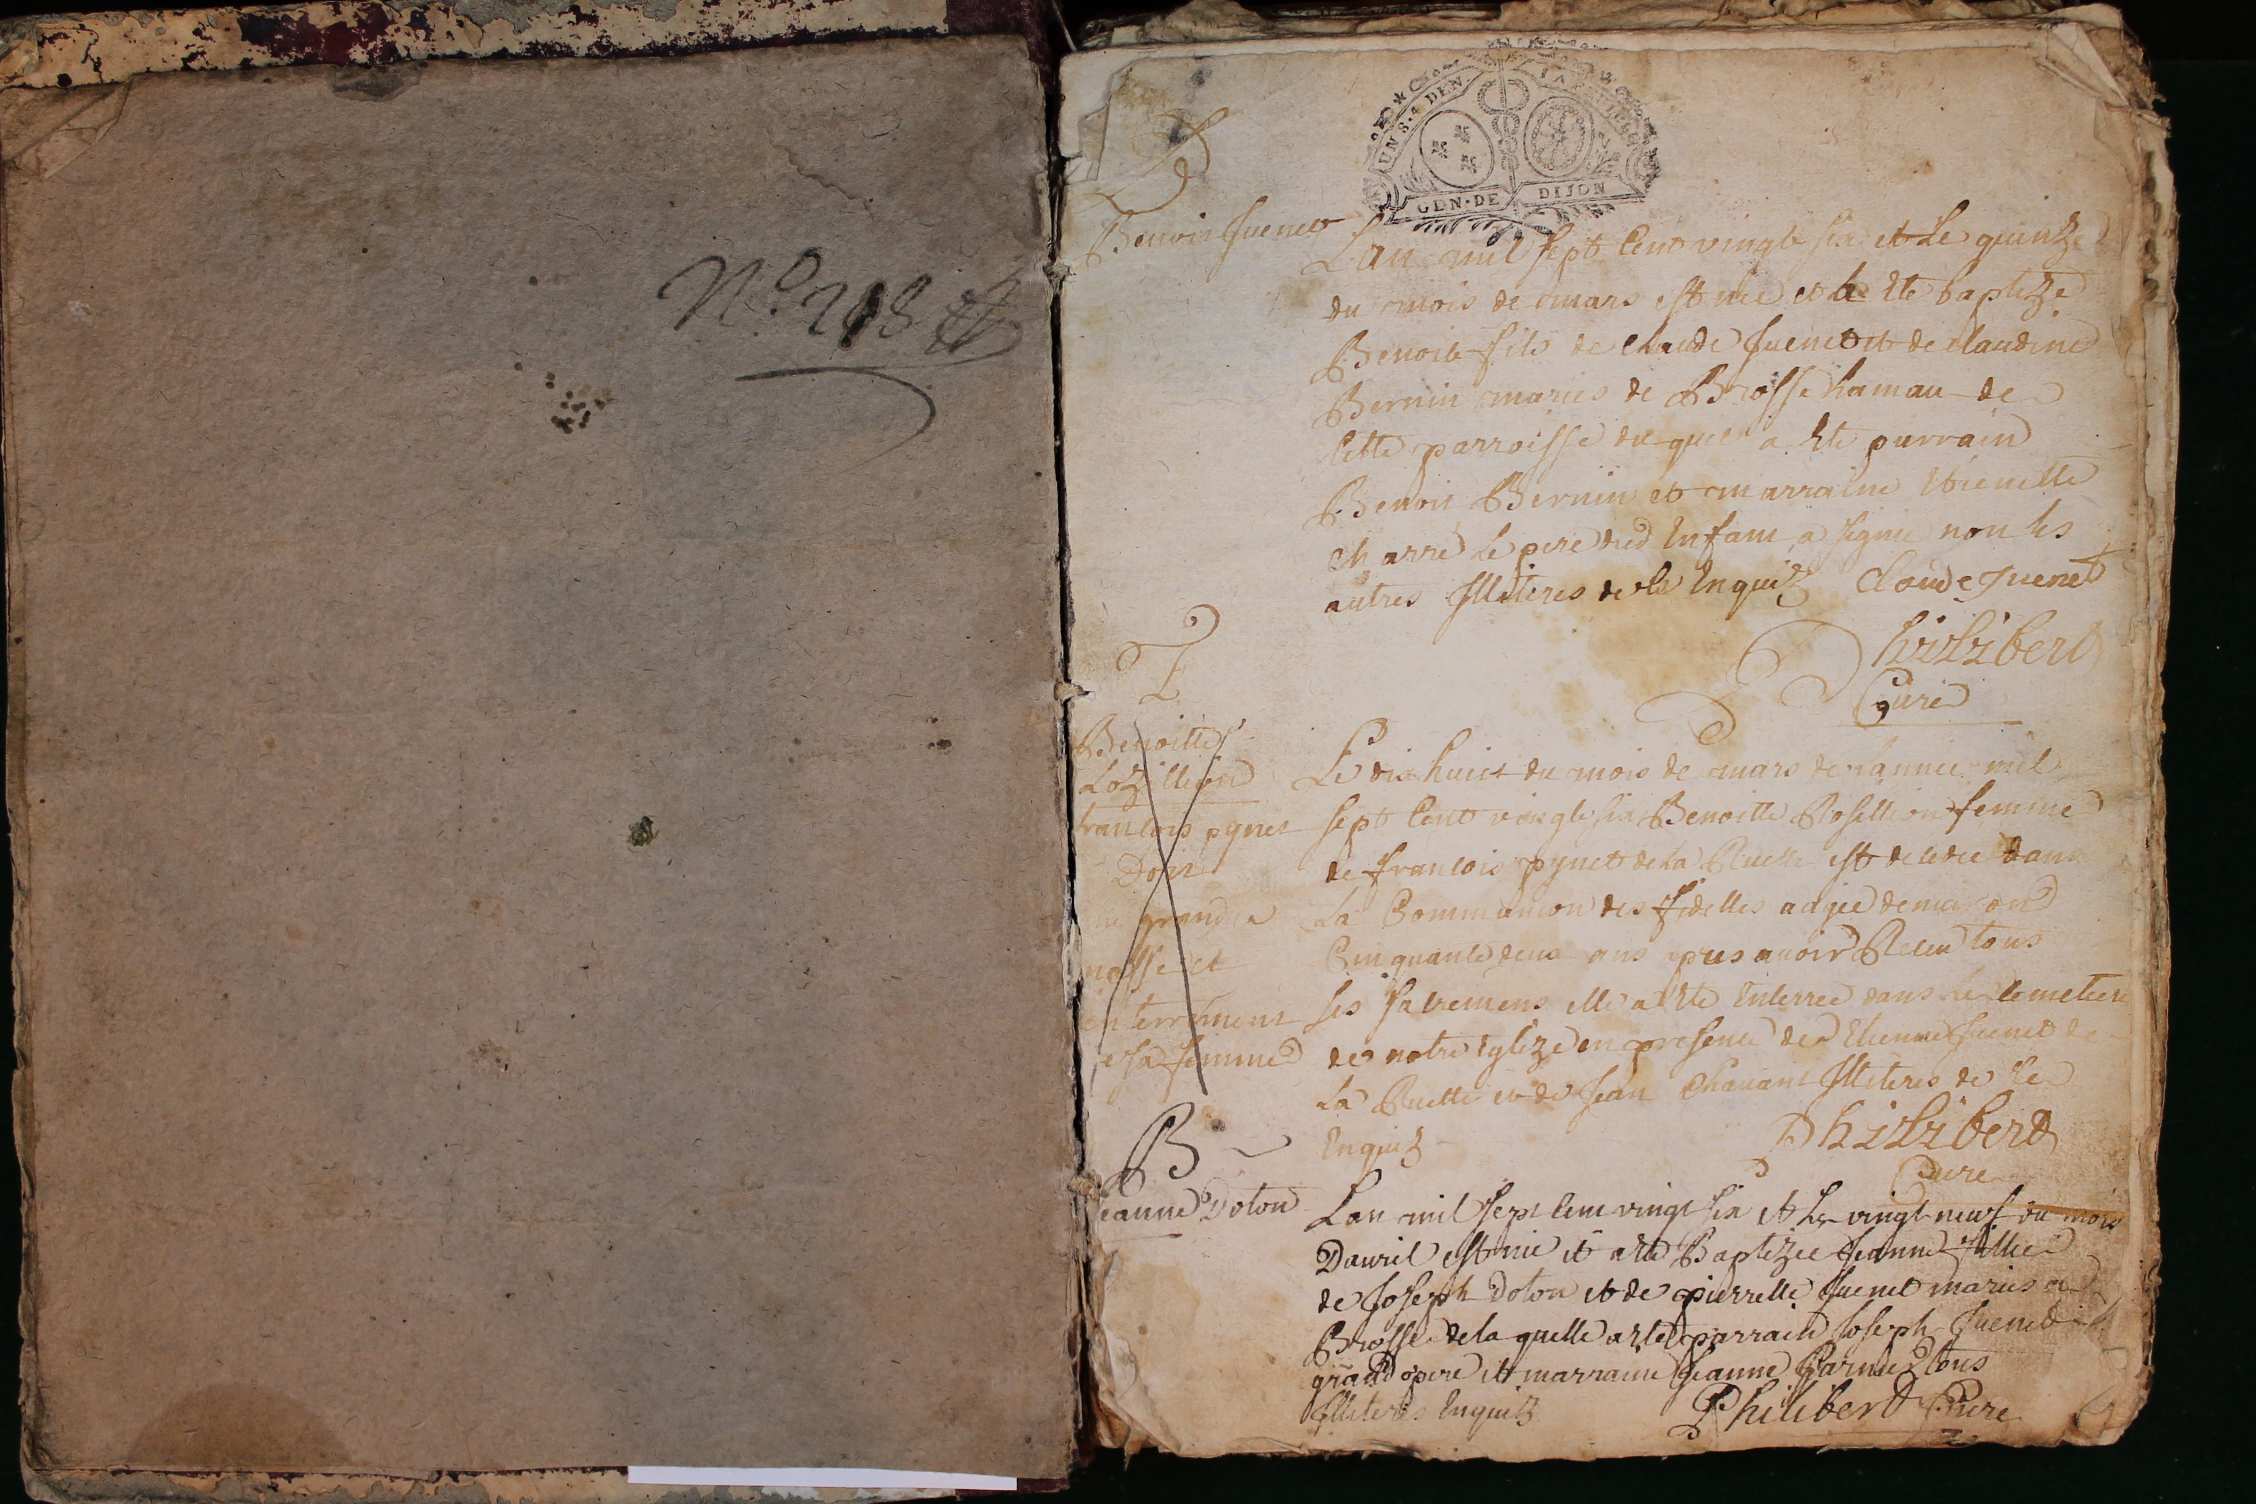 N.o 218
UN S. 4 DEN.
GEN. DE DIJON
B
Benoit Juenet
L'an mil sept Cent vingt six et Le quinze
du mois de mars est née et a Ete baptize
Benoit fils de claude Juenet et de claudine
Bernin maries de Brosse hamau de
Cette parroisse du quel a Ete parrain
Benoit Bernin et marraine Etienette
charre Le pere dud Enfant a signe non les
autres Illiteres de ce Enquiz Claude Juenet
Philibert
Cure
Benoitte
Lozillion
francois pynet
Doit
grande
messe et
enterrement
de sa femme
Le dix huict du mois de mars de l'annee mil
sept Cent vingt six Benoitte Rosillion femme
de francois pynet de La Ruelle est decedee dans
La Communion des fidelles agee denviron
Cinquante deux ans apres avoir Receu tous
ses sacremens elle a Ete Enterree dans Le Cemetiere
de notre Eglize en presence de Etienne Juenet de
La Ruelle et de Jean Chavant Illiteres de ce
Enquiz
Philibert
Cure
B
Jeanne Doton
L'an mil sept Cent vingt six et Le vingt neuf du mois
D'avril est nee et a Ete Baptizee Jeanne fillie
de Joseph Doton et de pierrette Juenet maries a
Brosse de la quelle a Ete parrain Joseph Juenet
grand pere et marraine Jeanne Garnier tous
Illiteres Enquiz
Philibert Cure